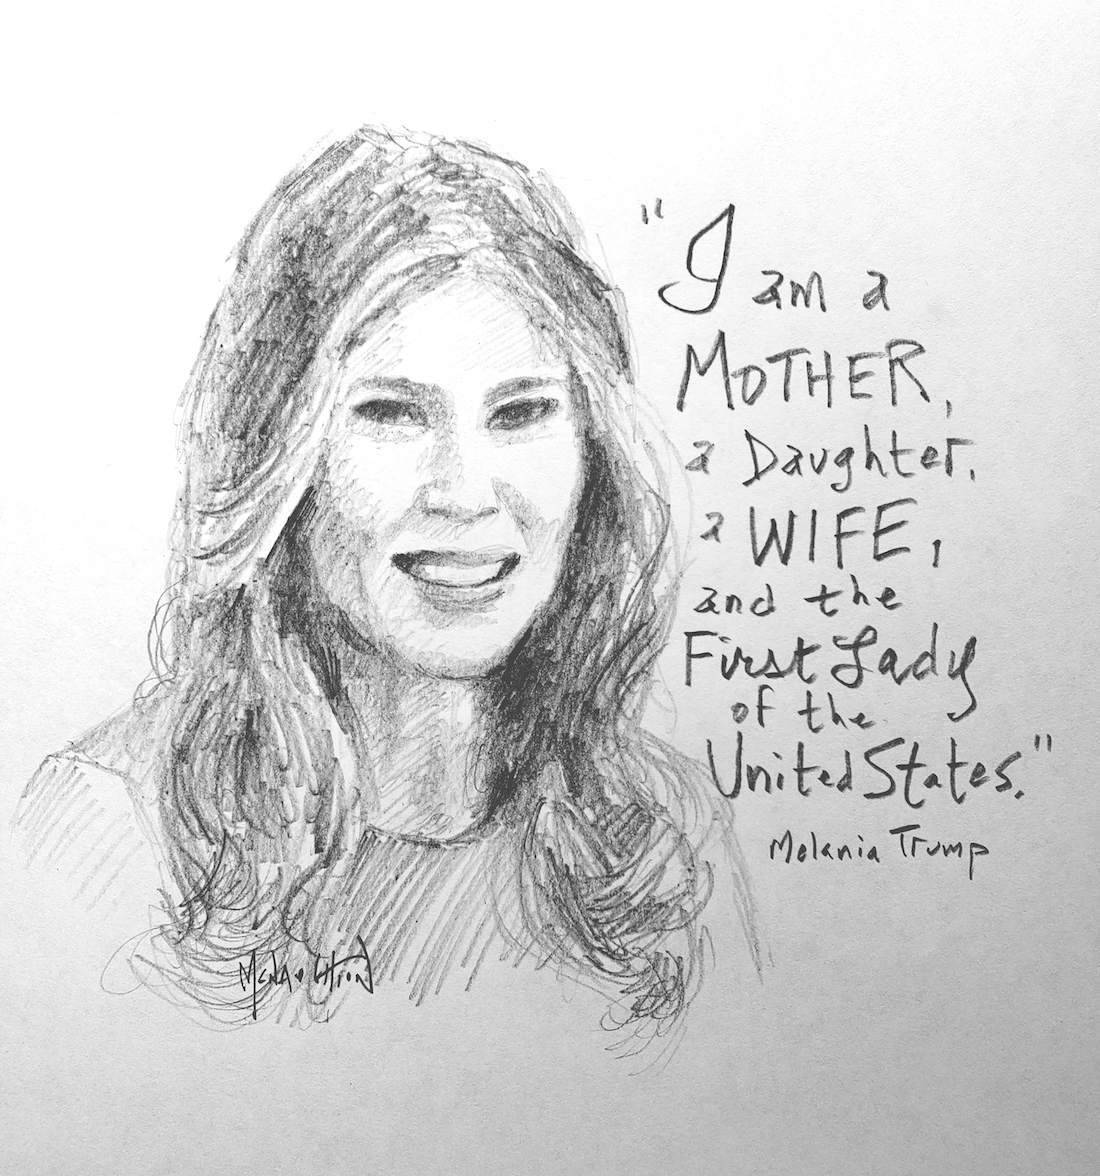 "I am a
MOTHER,
a Daughter,
a WIFE,
and the
First Lady
of the
United States."
Melania Trump